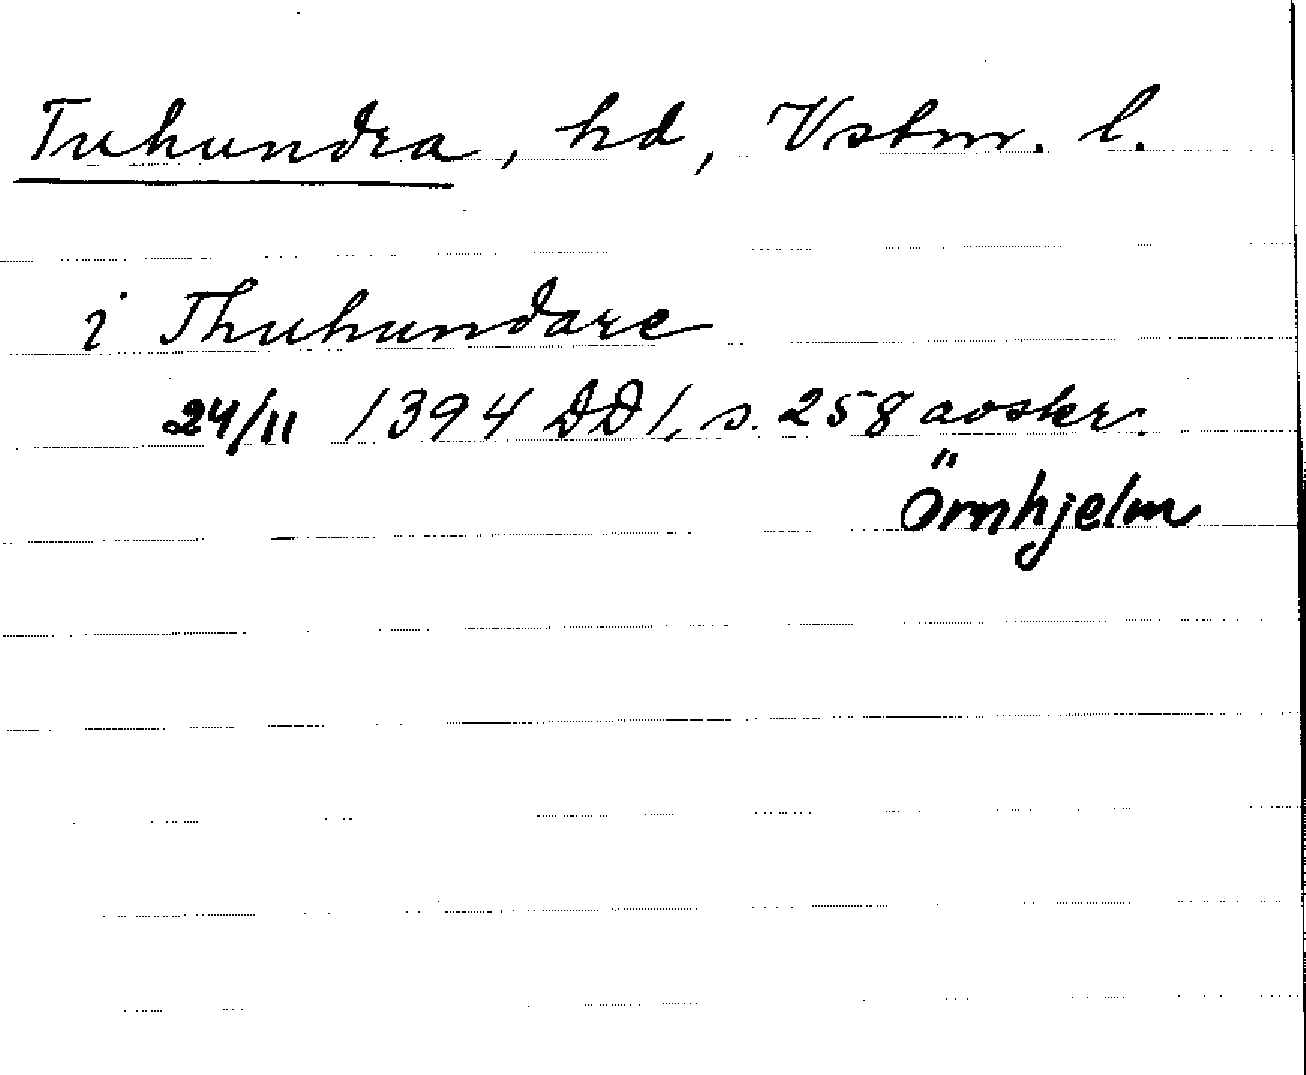 Tuhundra, hd, Vstm. l.
i Thuhundare
24/11 1394 DD1, s. 258 avskr.
Örnhjelm